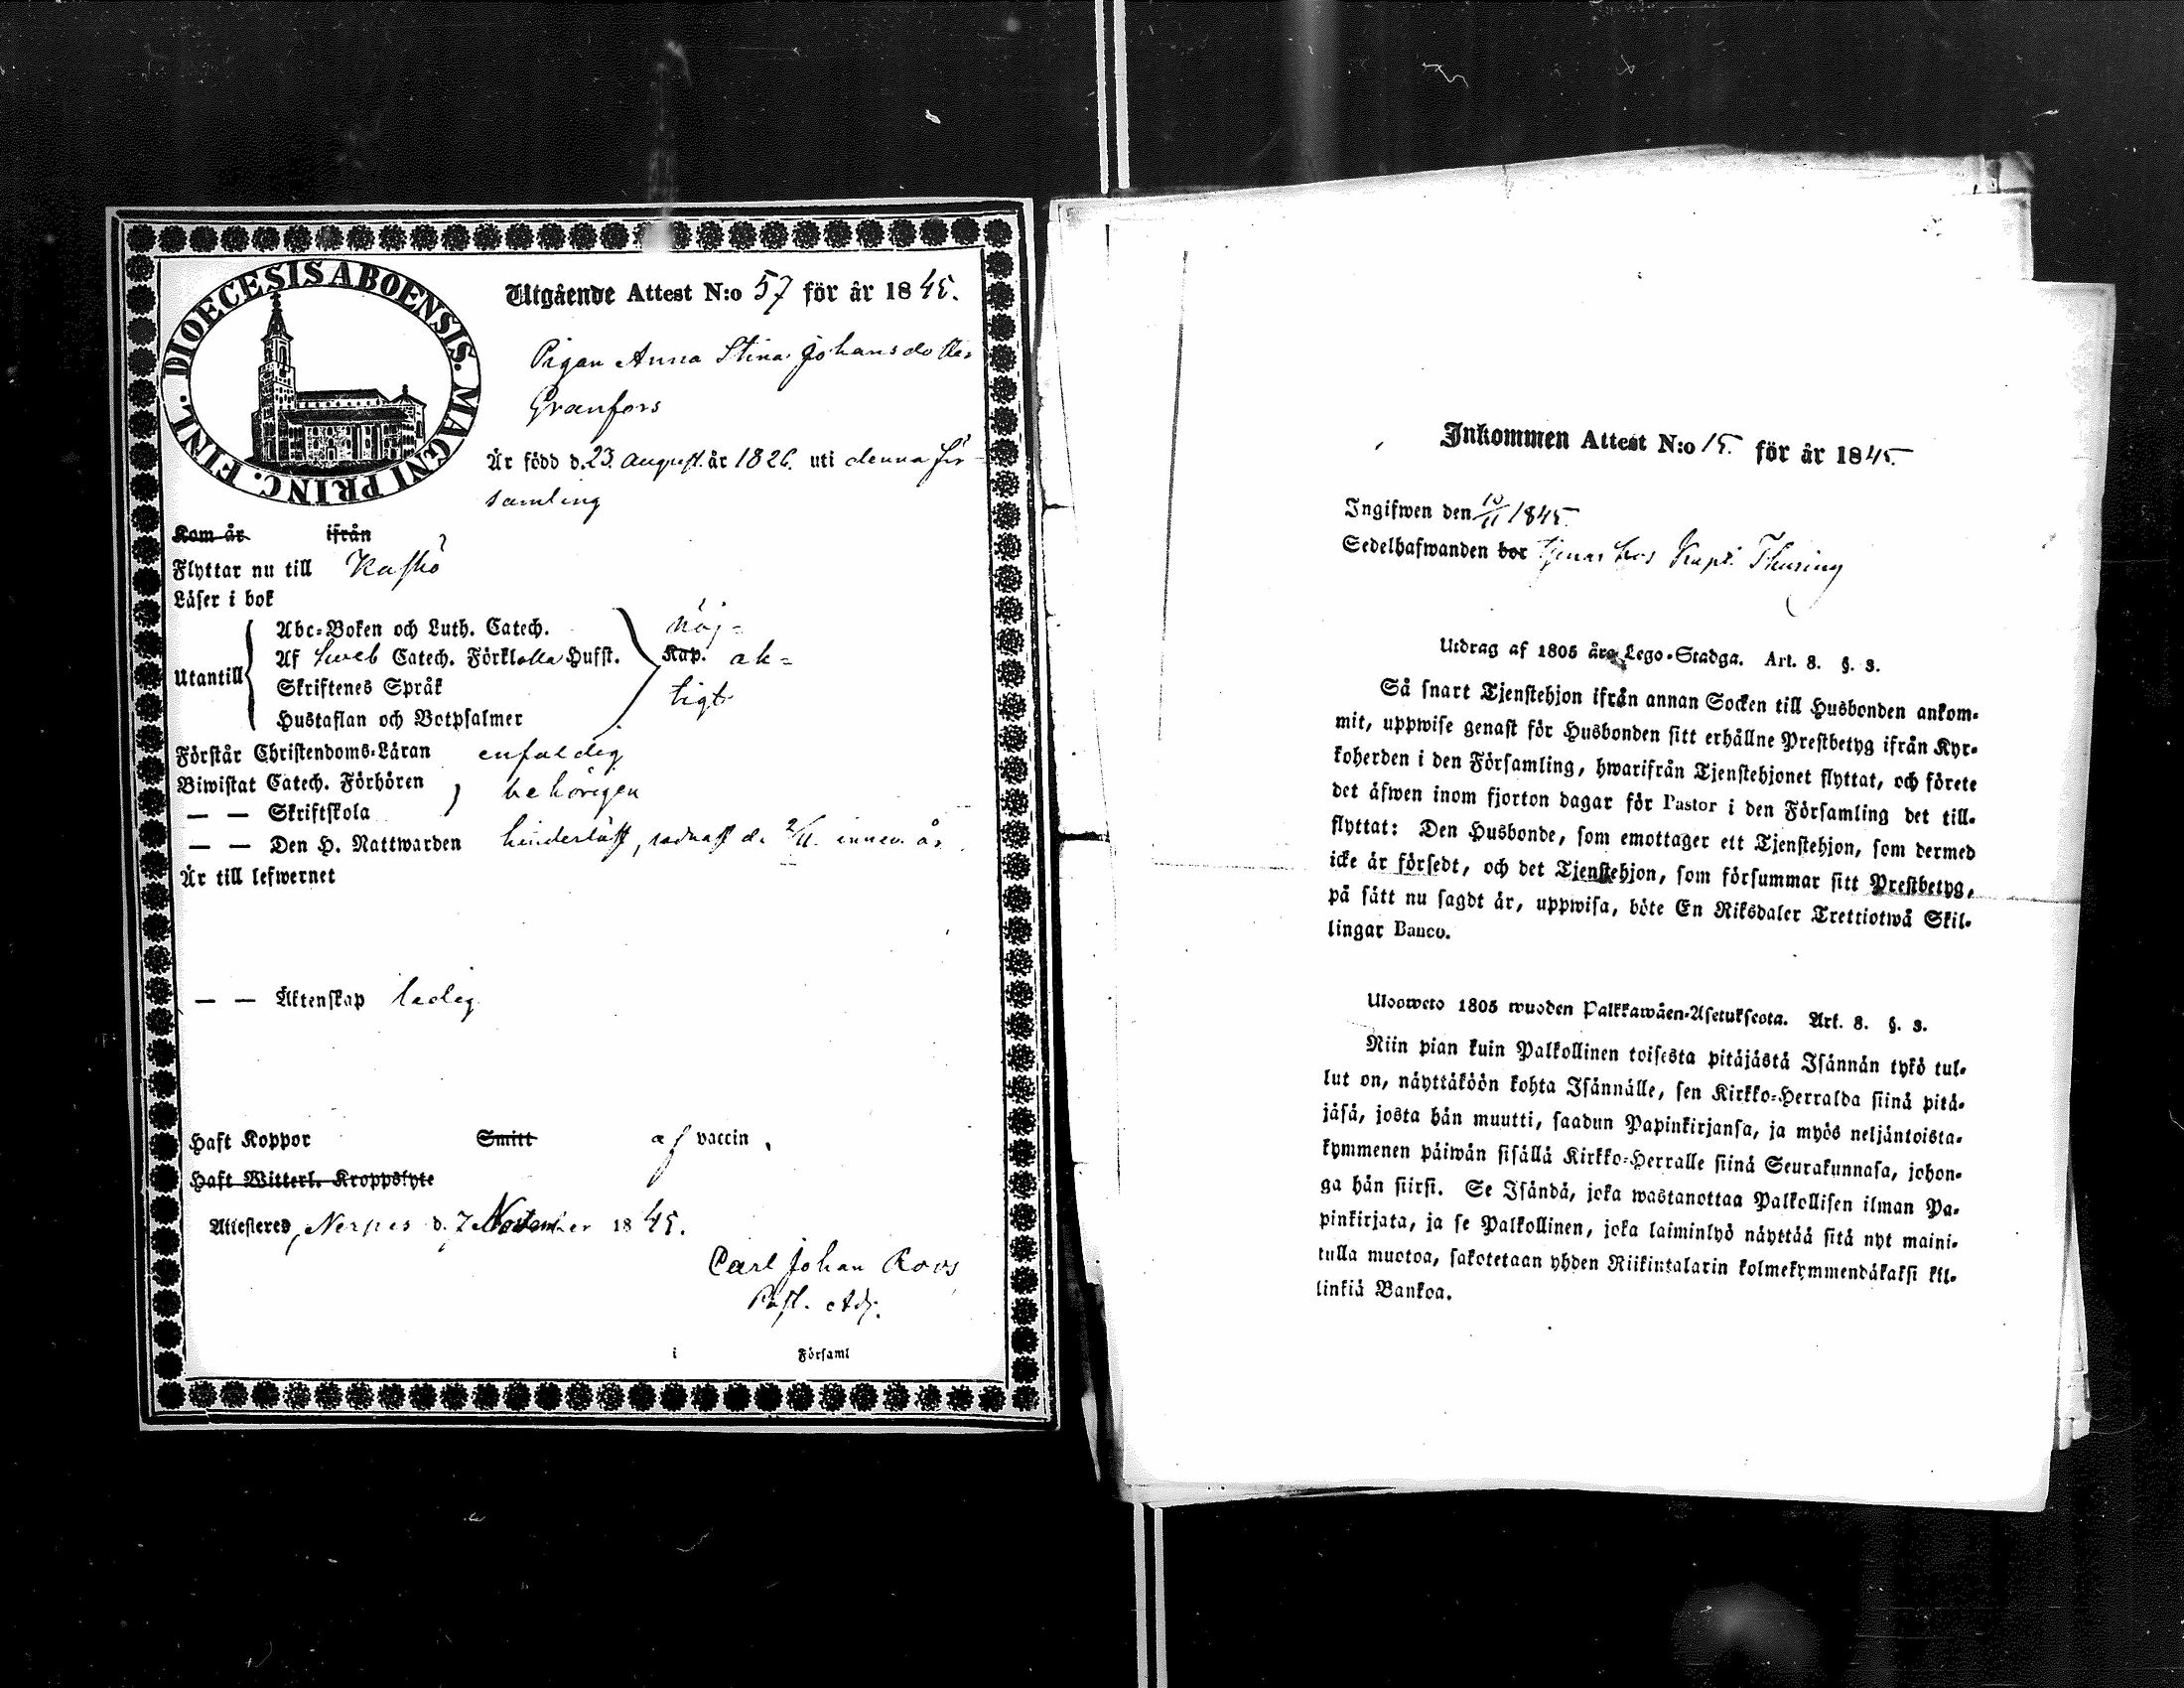 DIOECESIS ABOENSIS. MAGNI PRINC. FINL.
Utgående Attest N:o 57 för år 1845.
Pigan Anna Stina Johansdotter
Granfors
Är född d. 23 August. år 1826. uti denna för-
samling
Kom år ifrån
Flyttar nu till Kaskö
Läser i bok
Utantill
Abc-Boken och Luth. Catech.
Af Sveb Catech. Förklolla Husst.
Skriftenes Språk
Hustaflan och Botpsalmer
nöj-
Kap. ak-
tigt
Förstår Christendoms-Läran enfaldig
Biwistat Catech. Förhören
— — Skriftskola
behörigen
— — Den H. Nattwarden hinderlöst, sednast d. 2/11 innev. år.
Är till lefwernet
— — Äktenskap ledig
Haft Koppor Smitt af vaccin,
Haft Witterl. Kroppslyte
Attesteres, Nerpes d. 7 November 1845.
Carl Johan Roos
Past. Adj.
i Församl
Inkommen Attest N:o 15. för år 1845.
Ingifwen den 10/11 1845.
Sedelhafwanden bor tjenar hos Kapt. Thuring
Utdrag af 1805 års Lego-Stadga. Art. 8. §. 3.
Så snart Tjenstehjon ifrån annan Socken till Husbonden ankom-
mit, uppwise genast för Husbonden sitt erhållne Prestbetyg ifrån Kyr-
koherden i den Församling, hwarifrån Tjenstehjonet flyttat, och förete
det äfwen inom fjorton dagar för Pastor i den Församling det till-
flyttat: Den Husbonde, som emottager ett Tjenstehjon, som dermed
icke är försedt, och det Tjenstehjon, som försummar sitt Prestbetyg,
på sätt nu sagdt är, uppwisa, böte En Riksdaler Trettiotwå Skil-
lingar Banco.
Ulosweto 1805 wuoden Palkkawäen-Asetuksesta. Art. 8. §. 3.
Niin pian kuin Palkollinen toisesta pitäjästä Isännän tykö tul-
lut on, näyttäköön kohta Isännälle, sen Kirkko-Herralda siinä pitä-
jäsä, josta hän muutti, saadun Papinkirjansa, ja myös neljäntoista-
kymmenen päiwän sisällä Kirkko-Herralle siinä Seurakunnasa, johon-
ga hän siirsi. Se Isändä, joka wastanottaa Palkollisen ilman Pa-
pinkirjata, ja se Palkollinen, joka laiminlyö näyttää sitä nyt maini-
tulla muotoa, sakotetaan yhden Riikintalarin kolmekymmendäkaksi kil-
linkiä Bankoa.